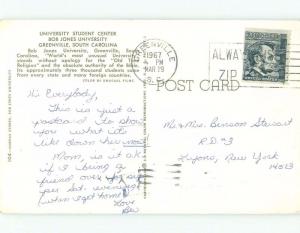 UNIVERSITY STUDENT CENTER
BOB JONES UNIVERSITY
GREENVILLE, SOUTH CAROLINA
Bob Jones University, Greenville, South
Carolina, "World's most unusual University"
stands without apology for the "Old Time
Religion" and the absolute authority of the Bible.
Its approximately three thousand students come
from every state and many foreign countries.
GREENVILLE
1967
PM
MAR 29
ALWAYS
ZIP
POST CARD
Hi Everybody,
This is just a
postcard to show
you what it's
like down here now.
Mom, is it ok
if I bring a
friend over for supper
Sat. evening
when I get home?
Love
Bev
Mr. & Mrs. Benson Stewart
R.D. #3
Lyons, New York